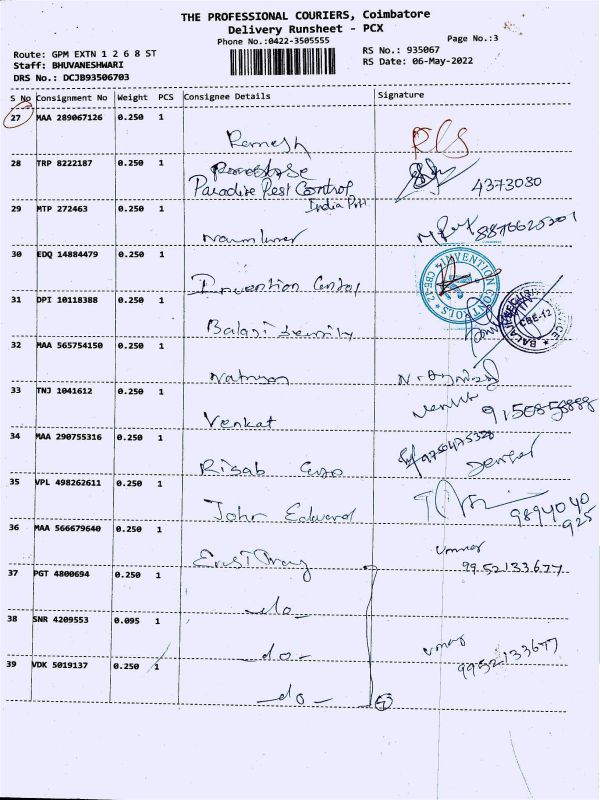 THE PROFESSIONAL COURIERS, Coimbatore
Delivery Runsheet - PCX
Phone No.:0422-3505555
Page No.:3
Route: GPM EXTN 1 2 6 8 ST
RS No.: 935067
Staff: BHUVANESHWARI
RS Date: 06-May-2022
DRS No.: DCJB93506703
S No Consignment No Weight PCS Consignee Details Signature
27 MAA 289067126 0.250 1
Ramesh
28 TRP 8222187 0.250 1
Paradise Pest Control 4373030
India Pvt
29 MTP 272463 0.250 1
30 EDQ 14884479 0.250 1
Invention Control
INVENTION CONTROLS CBE-12
31 DPI 10118388 0.250 1
Balaji Security
CBE-12
32 MAA 565754150 0.250 1
33 TNJ 1041612 0.250 1
Venkat
34 MAA 290755316 0.250 1
Risab
35 VPL 498262611 0.250 1
John Edward
9894040
925
36 MAA 566679640 0.250 1
9952133677
37 PGT 4800694 0.250 1
-do-
38 SNR 4209553 0.095 1
-do-
9952133677
39 VDK 5019137 0.250 1
-do-